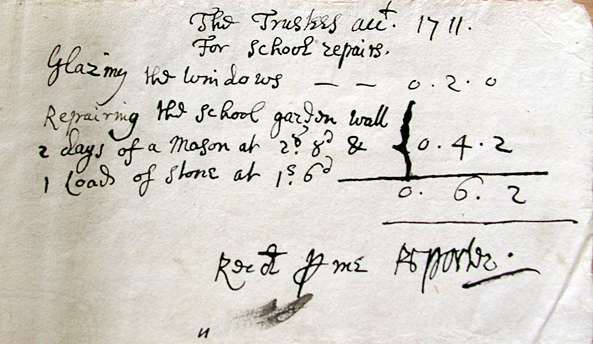 The Trustees acct. 1711.
For school repairs.
Glazing the windows — — 0 . 2 . 0
Repairing the school garden wall
2 days of a mason at 2s 8d & { 0 . 4 . 2
1 Load of stone at 1s. 6d
0 . 6 . 2
Recd p me Ro Porter.